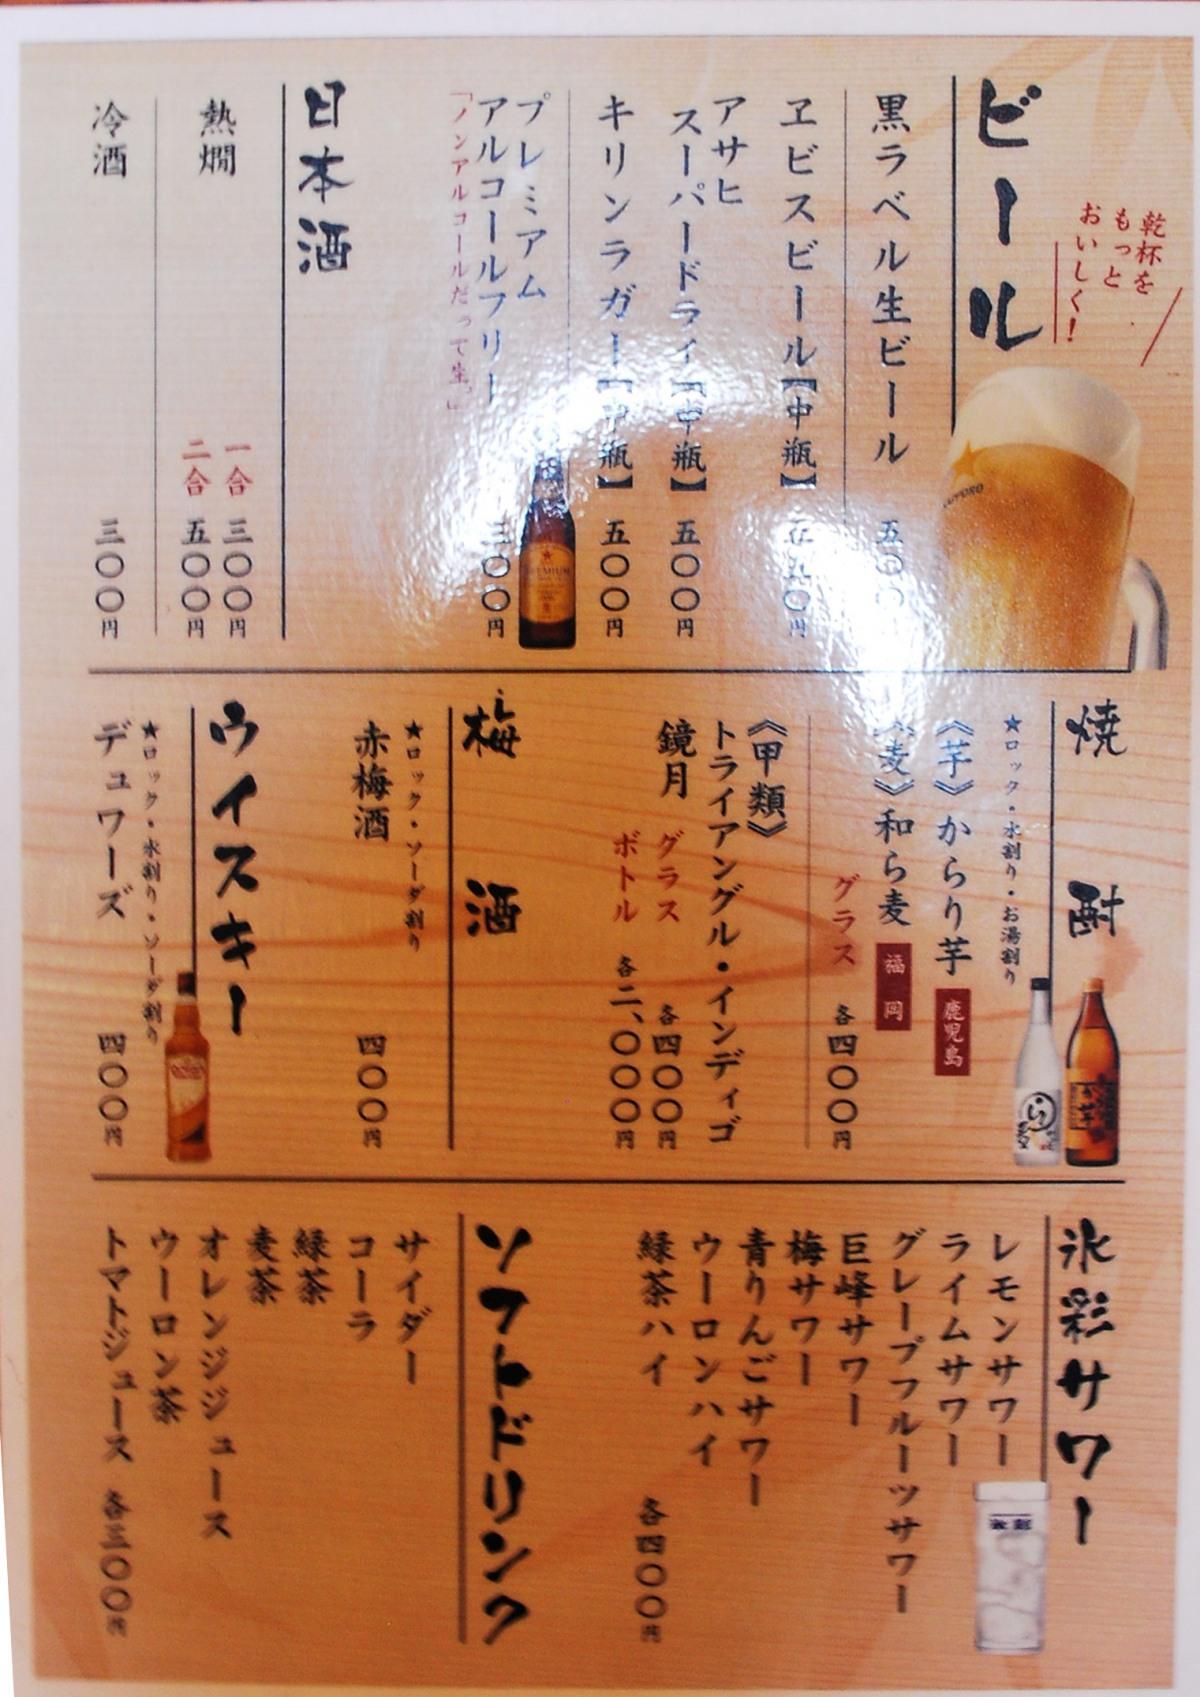 乾杯を
もっと
おいしく!
ビール
SAPPORO
黒ラベル生ビール 五〇〇円
ヱビスビール【中瓶】 五五〇円
アサヒ
スーパードライ【中瓶】 五〇〇円
キリンラガー【中瓶】 五〇〇円
プレミアム
アルコールフリー 三〇〇円
「ノンアルコールだって生。」
PREMIUM
日本酒
熱燗 一合 三〇〇円
二合 五〇〇円
冷酒 三〇〇円
焼酎
★ロック・水割り・お湯割り
《芋》からり芋 鹿児島
《麦》和ら麦 福岡
グラス 各四〇〇円
《甲類》
トライアングル・インディゴ
鏡月 グラス 各四〇〇円
ボトル 各二、〇〇〇円
梅酒
★ロック・ソーダ割り
赤梅酒 四〇〇円
ウイスキー
★ロック・水割り・ソーダ割り
デュワーズ 四〇〇円
氷彩サワー
レモンサワー
ライムサワー
グレープフルーツサワー
巨峰サワー
梅サワー
青りんごサワー
ウーロンハイ
緑茶ハイ 各四〇〇円
氷彩
ソフトドリンク
サイダー
コーラ
緑茶
麦茶
オレンジジュース
ウーロン茶
トマトジュース 各三〇〇円